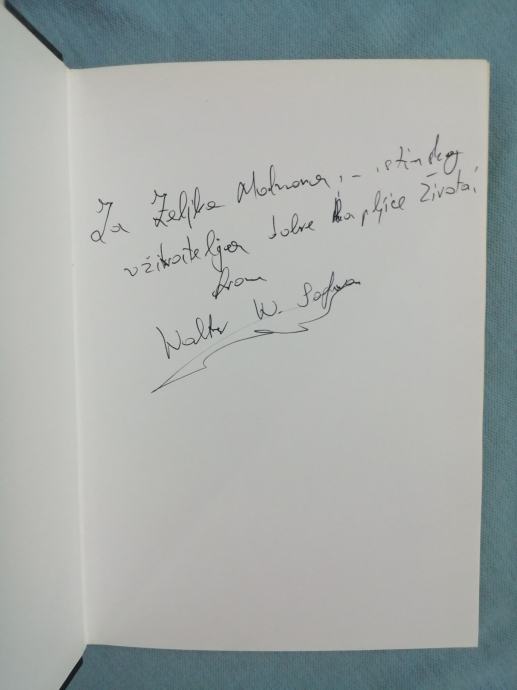 Za Željka Molnara, – istinskog
uživatelja dobre kapljice života!
from
Walter W.